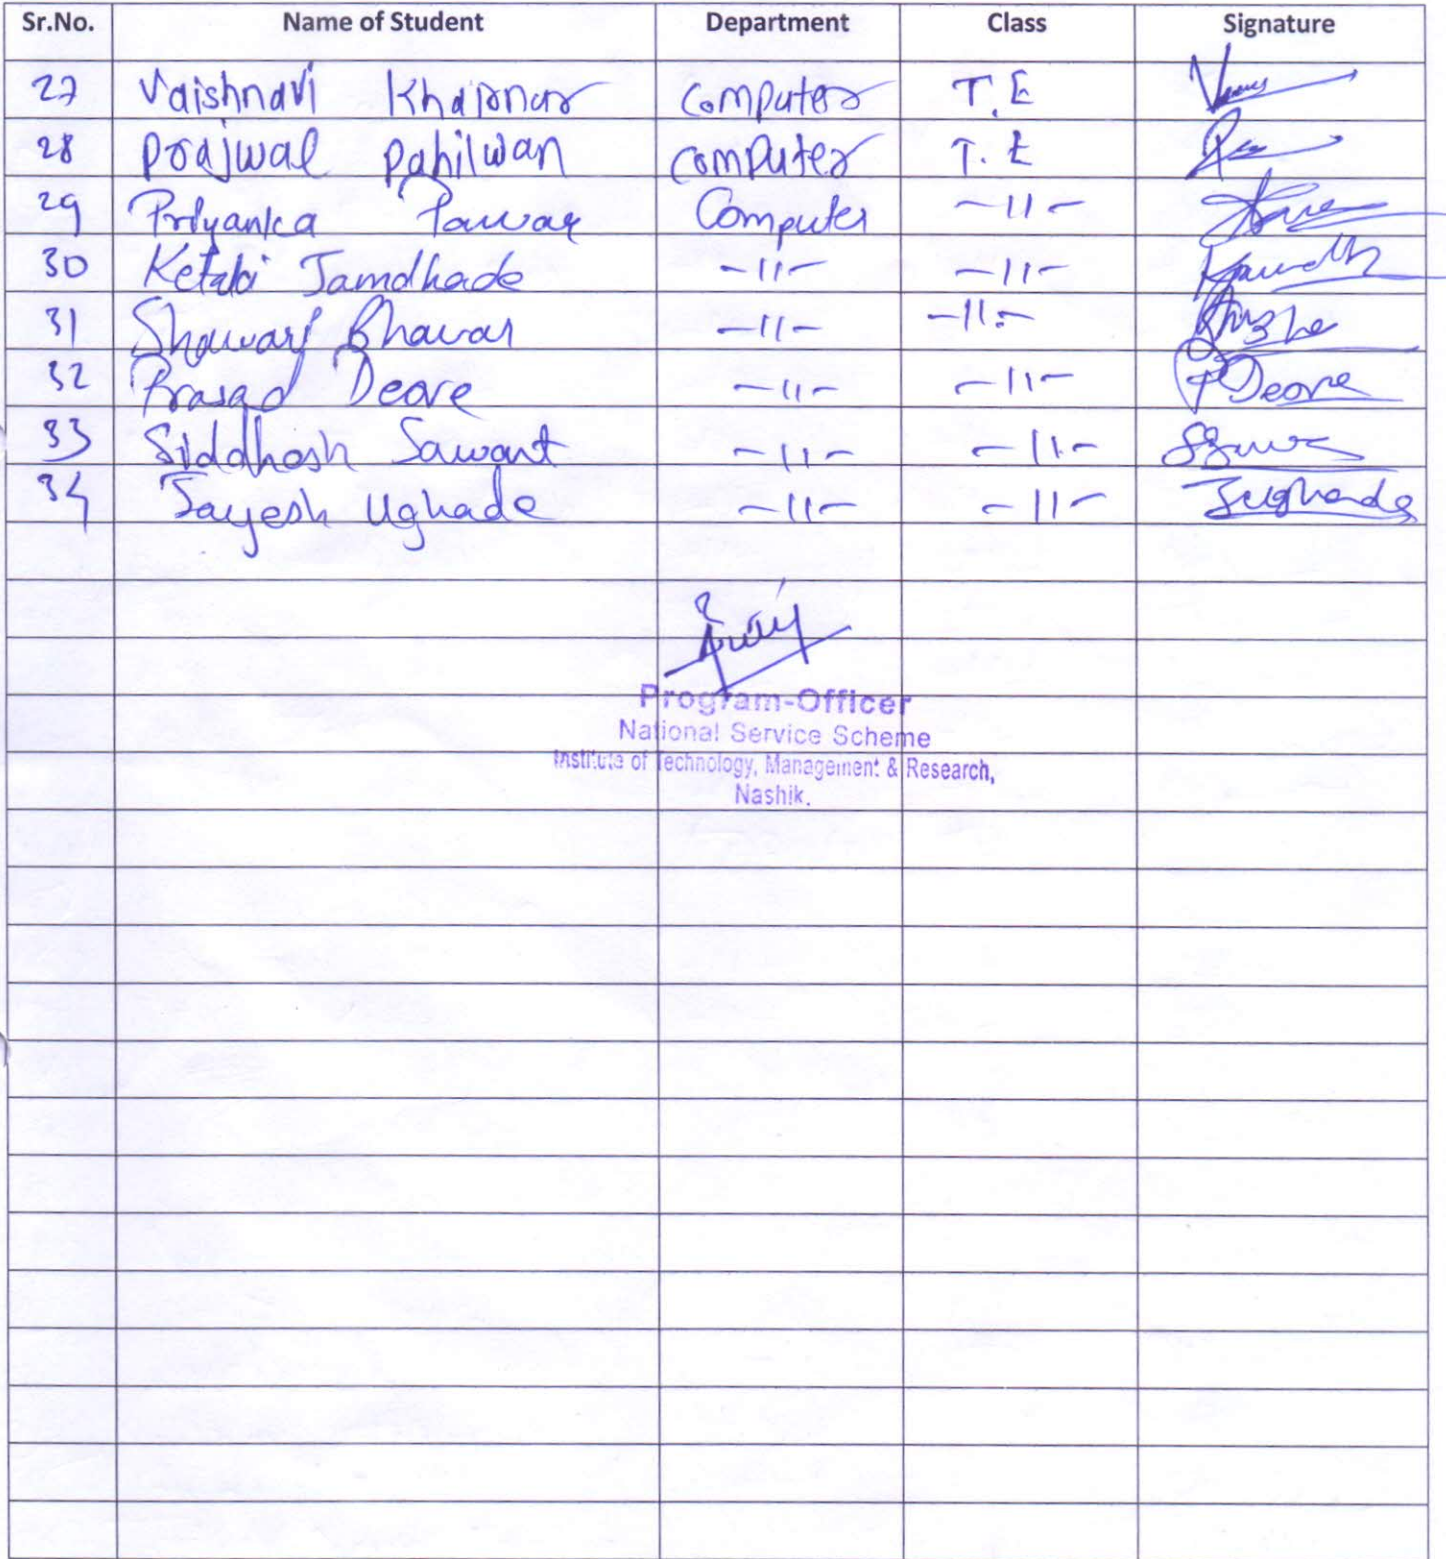 Sr.No. Name of Student Department Class Signature
27 Vaishnavi Khairnar Computer T.E
28 Prajwal Pahilwan Computer T.E
29 Priyanka Pawar Computer -11-
30 Ketaki Jamdhade -11- -11-
31 Bhavar -11- -11-
32 Prasad Deore -11- -11- PDeore
33 Siddhesh Sawant -11- -11-
34 Jayesh Ughade -11- -11- Jughade
Program-Officer
National Service Scheme
Institute of Technology, Management & Research,
Nashik.